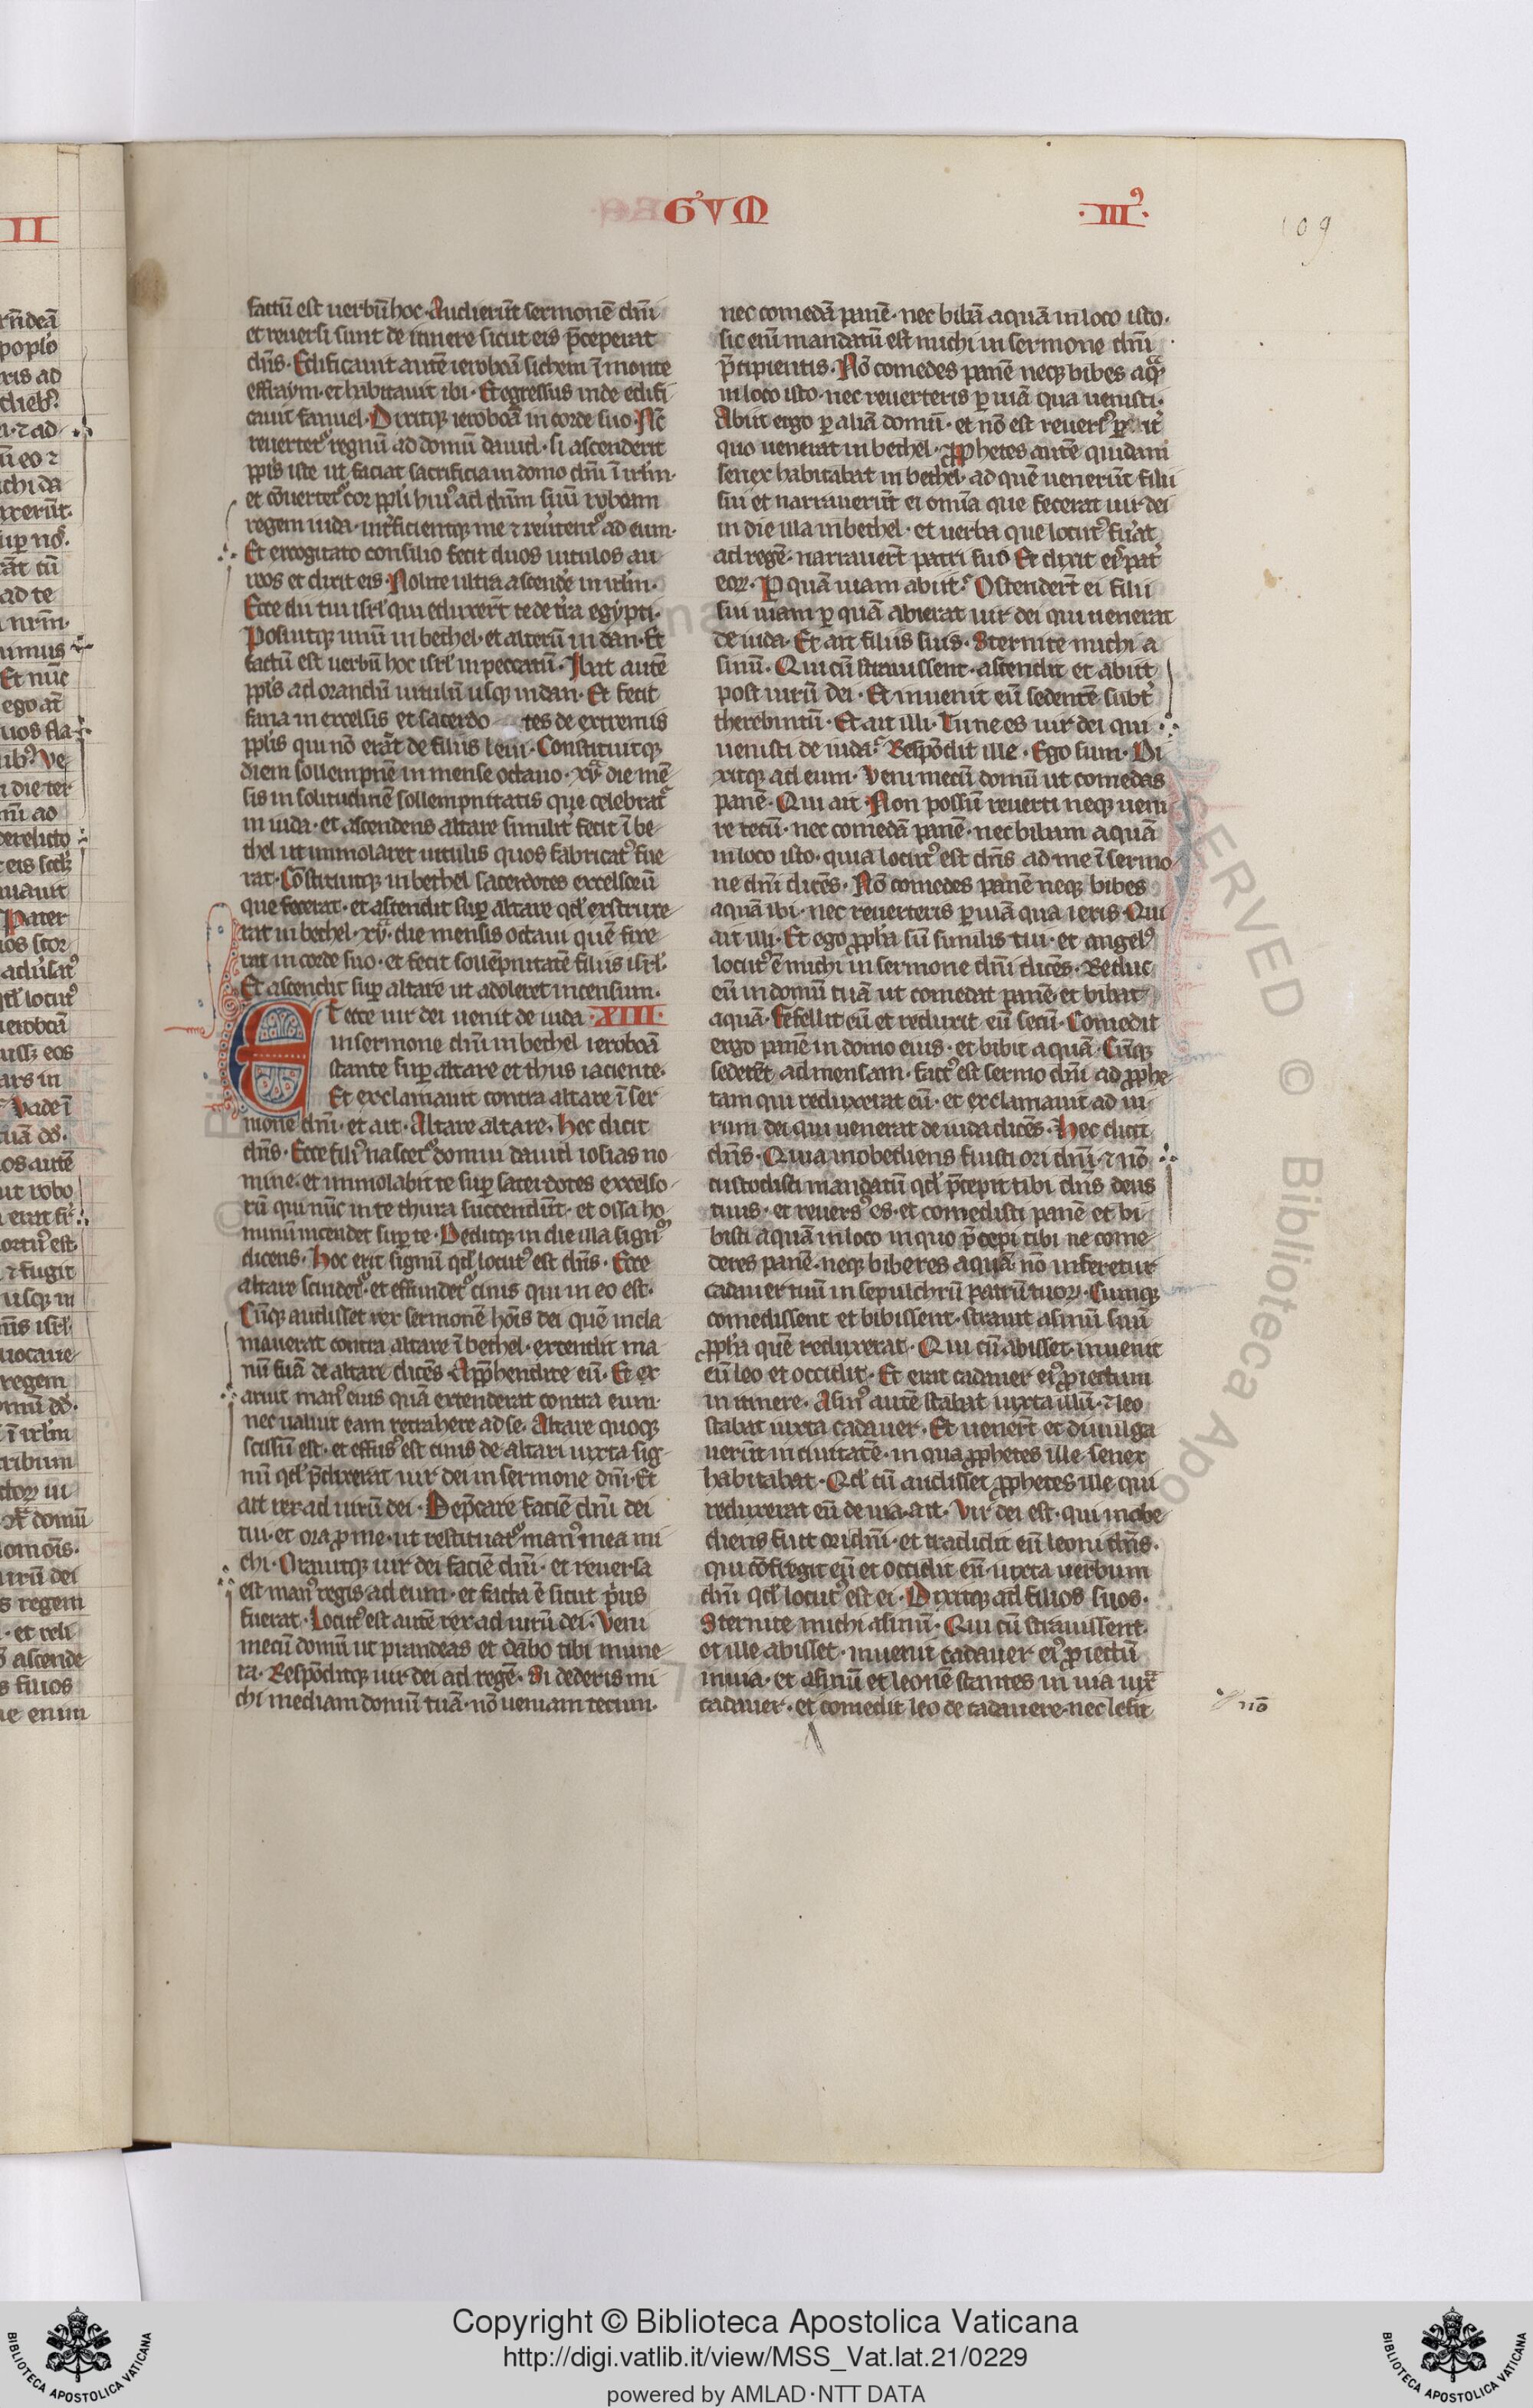 GʼVM
·III⁹·
109
factū est uerbū hoc· Audierūt sermonē dn̄i
et reuersi sunt de itinere sicut eis p̄ceperat
dn̄s· Edificauit autē ieroboā sichem ī monte
effraym· et habitauit ibi· Et egressus inde edifi
cauit fanuel· Dixitqꝫ ieroboā in corde suo· Nc̄
reuertet᷑ regnū ad domū dauid· si ascenderit
ppl̄s iste ut faciat sacrificia in domo dn̄i ī irl̄m·
et cōuertet᷑ cor ppl̄i huiꝰ ad dn̄m suū roboam
regem iuda· int̓ficientqꝫ me ⁊ reu̓tent᷑ ad eum·
Et excogitato consilio fecit duos uitulos au
reos et dixit eis· Nolite ultra ascende̓ in irl̄m·
Ecce dii tui isrl̓ qui eduxer̄t te de t̓ra egypti·
Posuitqꝫ unū in bethel· et alterū in dan· Et
factū est uerbū hoc isrl̓ in peccatū· Ibat autē
ppl̄s ad orandū uitulū usqꝫ in dan· Et fecit
fana in excelsis et sacerdo tes de extremis
ppl̄is qui nō erāt de filiis leui· Constituitqꝫ
diem sollempnē in mense octauo· xvͣ die mē
sis in solitudinē sollempnitatis que celebrat᷑
in iuda· et ascendens altare similit̓ fecit ī be
thel ut immolaret uitulis quos fabricatꝰ fue
rat· Cōstituitqꝫ in bethel sacerdotes excelsorū
que fecerat· et ascendit suꝑ altare qd̓ exstruxe
rat in bethel· xv· die mensis octaui quē finxe
rat in corde suo· et fecit sollēpnitatē filiis isrl̓·
Et ascendit suꝑ altare ut adoleret incensum·
Et ecce uir dei uenit de iuda ·XIII·
in sermone dn̄i in bethel ieroboā
stante suꝑ altare et thus iaciente·
Et exclamauit contra altare ī ser
mone dn̄i· et ait· Altare altare· Hec dicit
dn̄s· Ecce filiꝰ nascet᷑ domui dauid iosias no
mine· et immolabit te suꝑ sacerdotes excelso
rū qui nūc in te thura succendūt· et ossa ho
minū incendet suꝑ te· Deditqꝫ in die illa signū
dicens· Hoc erit signū qd̓ locutꝰ est dn̄s· Ecce
altare scindet᷑· et effundet᷑ cinis qui in eo est·
Cūqꝫ audisset rex sermonē hōis dei quē incla
mauerat contra altare ī bethel· extendit ma
nū suā de altari dicēs· Apph̄endite eū· Et ex
aruit manꝰ eius quā extenderat contra eum·
nec ualuit eam retrahere ad se· Altare quoqꝫ
scissū est· et effusꝰ est cinis de altari iuxta sig
nū qd̓ p̄dixerat uir dei in sermone dn̄i· Et
ait rex ad uirū dei· Dep̄care faciē dn̄i dei
tui· et ora ꝓ me· ut restituat᷑ manꝰ mea mi
chi· Orauitqꝫ uir dei faciē dn̄i· et reuersa
est manꝰ regis ad eum· et facta ē sicut pͥus
fuerat· Locutꝰ est autē rex ad uirū dei· Veni
mecū domū ut prandeas et dabo tibi mune
ra· Respōditqꝫ uir dei ad regē· Si dederis mi
chi mediam domū tuā· nō ueniam tecum·
nec comedā panē· nec bibā aquā in loco isto·
sic eim̄ mandatū est michi in sermone dn̄i
p̄cipientis· Nō comedes panē neqꝫ bibes aqͣꝫ
in loco isto· nec reuerteris ꝑ uiā qua uenisti·
Abiit ergo ꝑ aliā domū· et nō est reuersꝰ ꝑ it̓
quo uenerat in bethel· ꝓphetes autē quidam
senex habitabat in bethel· ad quē uenerūt filii
sui et narrauerūt ei omīa que fecerat uir dei
in die illa in bethel· et uerba que locutꝰ fu̓at
ad regē· narrauer̄t patri suo Et dixit eiꝰ pat̓
eoꝝ· Ꝑ quā uiam abiit? Ostender̄t ei filii
sui uiam ꝑ quā abierat uir dei qui uenerat
de iuda· Et ait filiis suis· Sternite michi a
sinū· Qui cū strauissent· ascendit et abiit
post uirū dei· Et inuenit eū sedentē subt̓
therebintū· Et ait illi· Tu ne es uir dei qui
uenisti de iuda? Respōdit ille· Ego sum· Di
xitqꝫ ad eum· Veni mecū domū ut comedas
panē· Qui ait· Non possū reuerti neqꝫ ueni
re tecū· nec comedā panē· nec bibam aquā
in loco isto· quia locutꝰ est dn̄s ad me ī sermo
ne dn̄i dicēs· Nō comedes panē neqꝫ bibes
aquā ibi· nec reuerteris ꝑ uiā qua ieris· Qui
ait illi· Et ego ꝓph̓a sū similis tui· et angelꝰ
locutꝰ ē michi in sermone dn̄i dicēs· Reduc
eū in domū tuā ut comedat panē et bibat
aquā· Fefellit eū et reduxit eū secū· Comedit
ergo panē in domo eius· et bibit aquā· Cūqꝫ
sederēt ad mensam· factꝰ est sermo dn̄i ad ꝓphe
tam qui reduxerat eū· et exclamauit ad ui
rum dei qui uenerat de iuda dicēs· Hec dicit
dn̄s· Quia inobediens fuisti ori dn̄i· ⁊ nō
custodisti mandatū qd̓ p̄cepit tibi dn̄s deus
tuus· et reuersꝰ es· et comedisti panē et bi
bisti aquā in loco in quo p̄cepi tibi ne come
deres panē· neqꝫ biberes aquā· nō inferetur
cadauer tuū in sepulchrū patrū tuoꝝ· Cumqꝫ
comedissent et bibissent· strauit asinū suū
ꝓph̓a quē reduxerat· Qui cū abisset· inuenit
eū leo et occidit· Et erat cadauer eiꝰ ꝓiectum
in itinere· Asinꝰ autē stabat iuxta illū· ⁊ leo
stabat iuxta cadauer· Et uener̄t et diuulga
uerūt in ciuitatē· in qua ꝓphetes ille senex
habitabat· Qd̓ cū audisset ꝓphetes ille qui
reduxerat eū de uia· ait· Vir dei est· qui inobe
diens fuit ori dn̄i· et tradidit eū leoni dn̄s·
qui cōfregit eū et occidit eū· iuxta uerbum
dn̄i qd̓ locutꝰ est ei· Dixitqꝫ ad filios suos·
Sternite michi asinū· Qui cū strauissent·
et ille abisset· inuenit cadauer eiꝰ ꝓiectū
in uia· et asinū et leonē stantes in uia iuxͣ
cadauer· et comedit leo de cadauere· nec lesit
nō
Copyright © Biblioteca Apostolica Vaticana
http://digi.vatlib.it/view/MSS_Vat.lat.21/0229
powered by AMLAD·NTT DATA
BIBLIOTECA APOSTOLICA VATICANA
BIBLIOTECA APOSTOLICA VATICANA